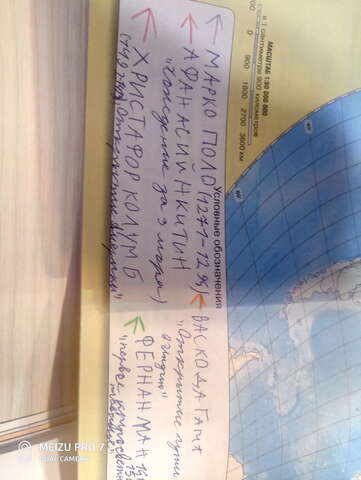 МАСШТАБ 1:90 000 000
в 1 сантиметре 900 километров
0 900 1800 2700 3600 км
Условные обозначения
МАРКО ПОЛО (1271-1295)
АФАНАСИЙ НИКИТИН
"Хождение за 3 моря"
ХРИСТАФОР КОЛУМБ
Открытие Америки"
ВАСКО ДА ГАМА
"Открытие пути
в Индию"
ФЕРНАН МАН
"первое
MEIZU PRO 7
DUAL CAMERA